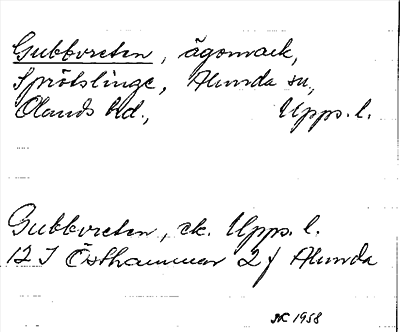 Gubbvreten, ägomark,
Sprötslinge, Alunda sn,
Olands hd., Upps. l.
Gubbvreten, ek. Upps. l.
12 I Östhammar 2 f Alunda
NC 1958